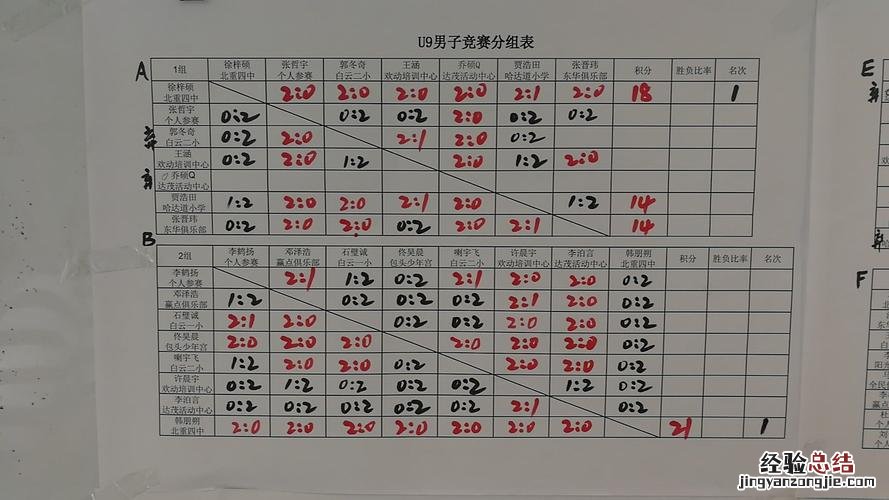 U9男子竞赛分组表
A
1组 徐梓硕 北重四中 张哲宇 个人参赛 郭冬奇 白云二小 王涵 欢动培训中心 乔硕Q 达茂活动中心 贾浩田 哈达道小学 张晋玮 东华俱乐部 积分 胜负比率 名次
徐梓硕 北重四中 2:0 2:0 2:0 2:0 2:1 2:0 18 1
张哲宇 个人参赛 0:2 0:2 0:2 2:0 0:2 0:2
弃 郭冬奇 白云二小 0:2 2:0 2:1 2:0 0:2
王涵 欢动培训中心 0:2 2:0 1:2 2:0 1:2 2:0
弃 乔硕Q 达茂活动中心
贾浩田 哈达道小学 1:2 2:0 2:0 2:1 2:0 1:2 14
张晋玮 东华俱乐部 0:2 2:0 2:0 0:2 2:0 2:1 14
B
2组 李鹤扬 个人参赛 邓泽浩 赢点俱乐部 石璧诚 白云一小 佟昊晨 包头少年宫 喇宇飞 白云二小 许晨宇 欢动培训中心 李泊言 达茂活动中心 韩朋朔 北重四中 积分 胜负比率 名次
李鹤扬 个人参赛 2:1 1:2 0:2 2:1 2:0 2:0 0:2
邓泽浩 赢点俱乐部 1:2 0:2 0:2 0:2 2:1 2:0 0:2
石璧诚 白云一小 2:1 2:0 0:2 0:2 2:0 2:0 0:2
佟昊晨 包头少年宫 2:0 2:0 2:0 2:0 2:0 2:0 0:2
喇宇飞 白云二小 1:2 2:0 2:0 0:2 2:0 2:0 0:2
许晨宇 欢动培训中心 0:2 1:2 0:2 0:2 0:2 1:2 0:2
李泊言 达茂活动中心 0:2 0:2 0:2 0:2 0:2 2:1 0:2
韩朋朔 北重四中 2:0 2:0 2:0 2:0 2:0 2:0 2:0 21 1
E
F
经验总结
jingyanzongjie.com